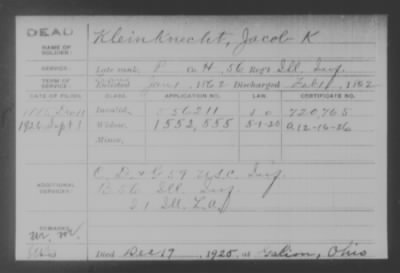 DEAD
Kleinknecht, Jacob K
NAME OF
SOLDIER:
SERVICE: Late rank, P Co. H, 56 Reg't Ill. Inf.
TERM OF
SERVICE: Enlisted Jan 1, 1862 Discharged Feb 1862
DATE OF FILING. CLASS. APPLICATION NO. LAW. CERTIFICATE NO.
Invalid, 556211 720,765
1926 Sept 1 Widow, 1,552,555 5-1-20 A 12-16-26
Minor,
ADDITIONAL
SERVICES:
C, D & G 59 U.S.C. Inf
B 56 Ill. Inf
Ill. L.A.
REMARKS:
Died Dec 17, 1925, at Galion, Ohio